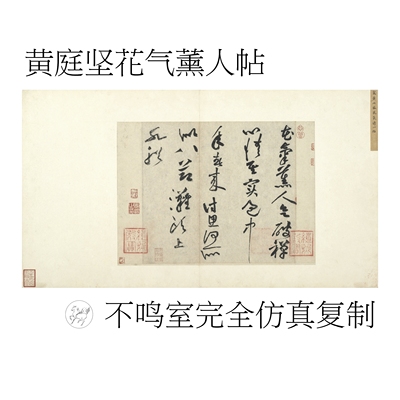 黄庭坚花气薰人帖
花氣薰人欲破禪
心情其实過中
年春来詩思何所
似八節灘頭上
水船
不鸣室完全仿真复制